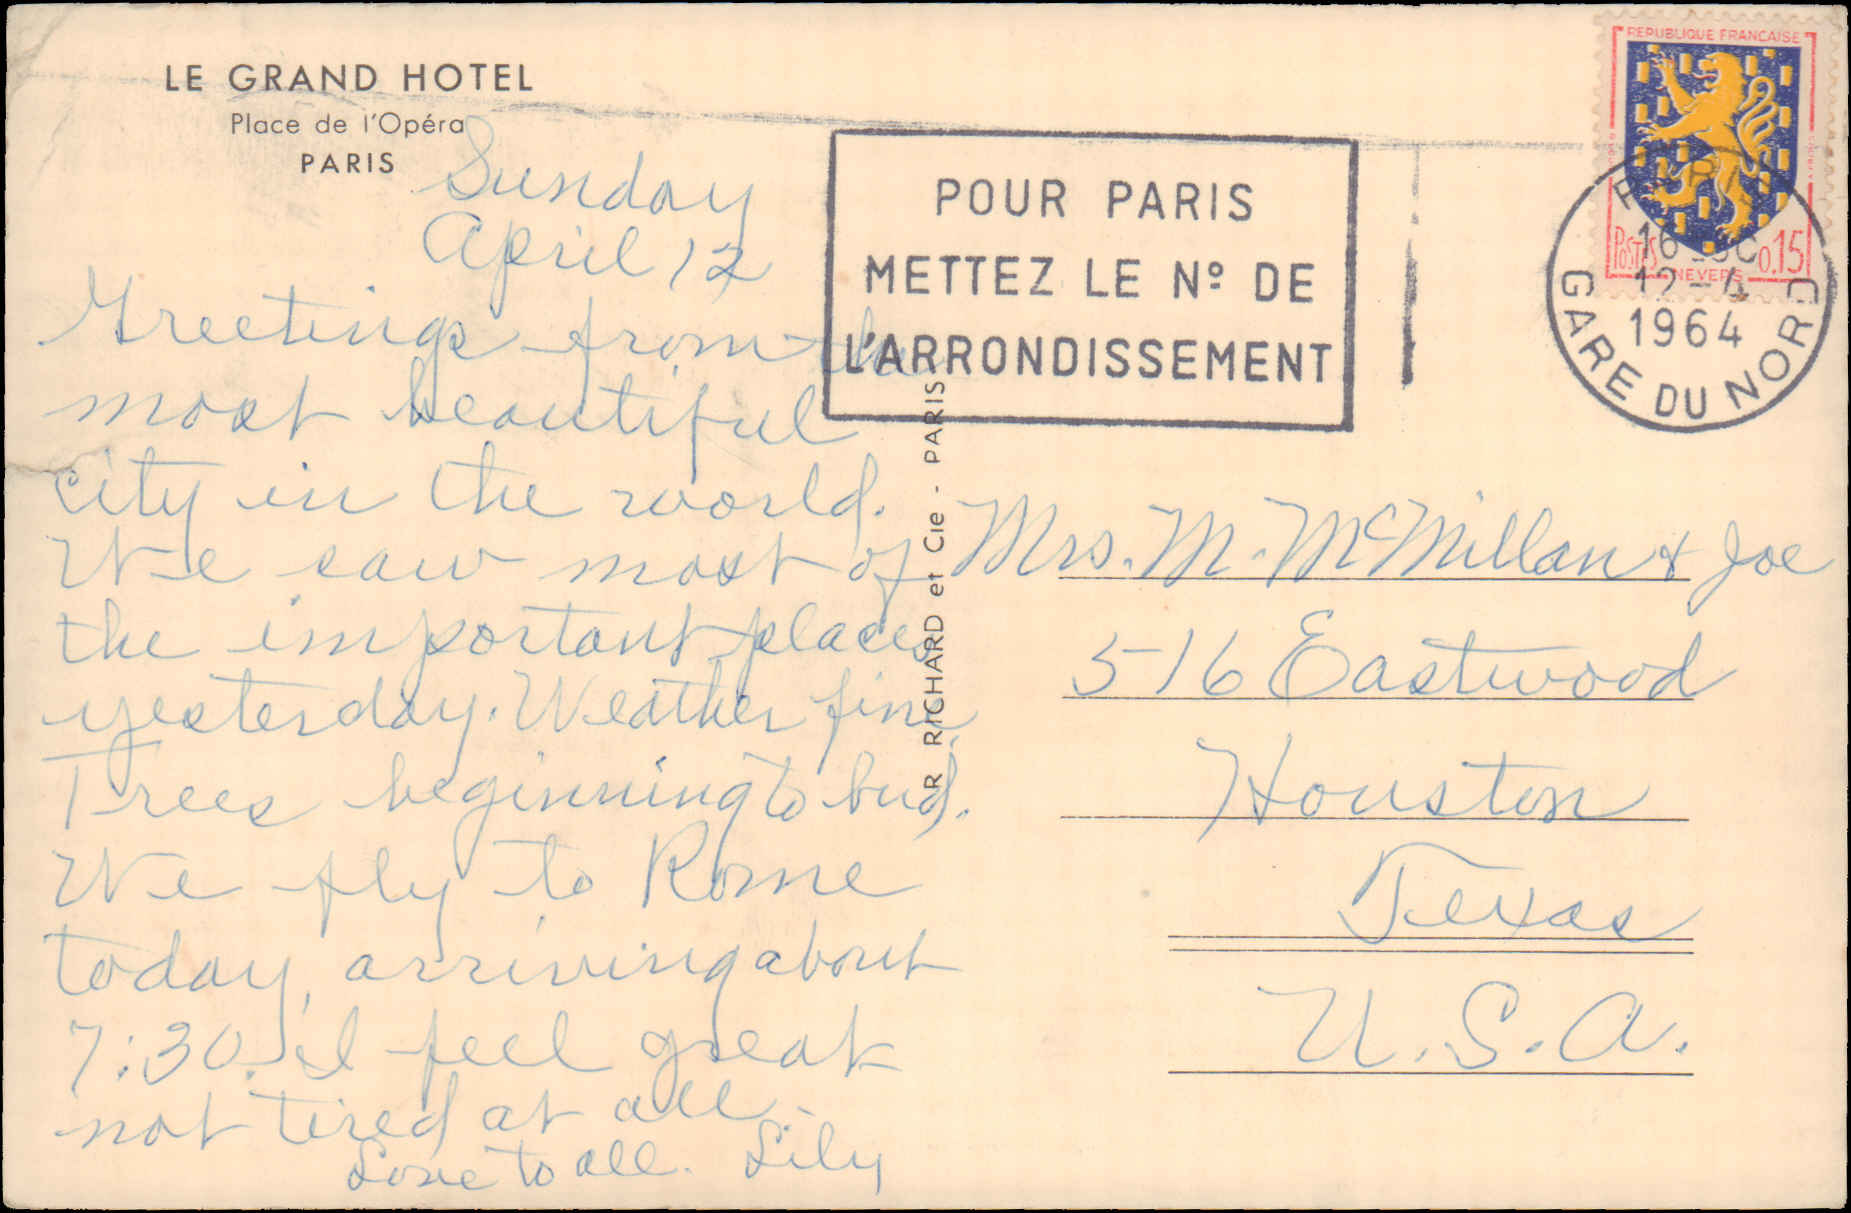 LE GRAND HOTEL
Place de l'Opéra
PARIS
Sunday
April 12
Greetings from the
most beautiful
city in the world.
We saw most of
the important places
yesterday. Weather fine.
Trees beginning to bud.
We fly to Rome
today, arriving about
7:30. I feel great
not tired at all.
Love to all. Lily
POUR PARIS
METTEZ LE Nº DE
L'ARRONDISSEMENT
REPUBLIQUE FRANÇAISE
POSTES 0,15
NEVERS
PARIS
16
12-4
1964
GARE DU NORD
RICHARD et Cie - PARIS
Mrs. M. McMillan & Joe
516 Eastwood
Houston
Texas
U.S.A.